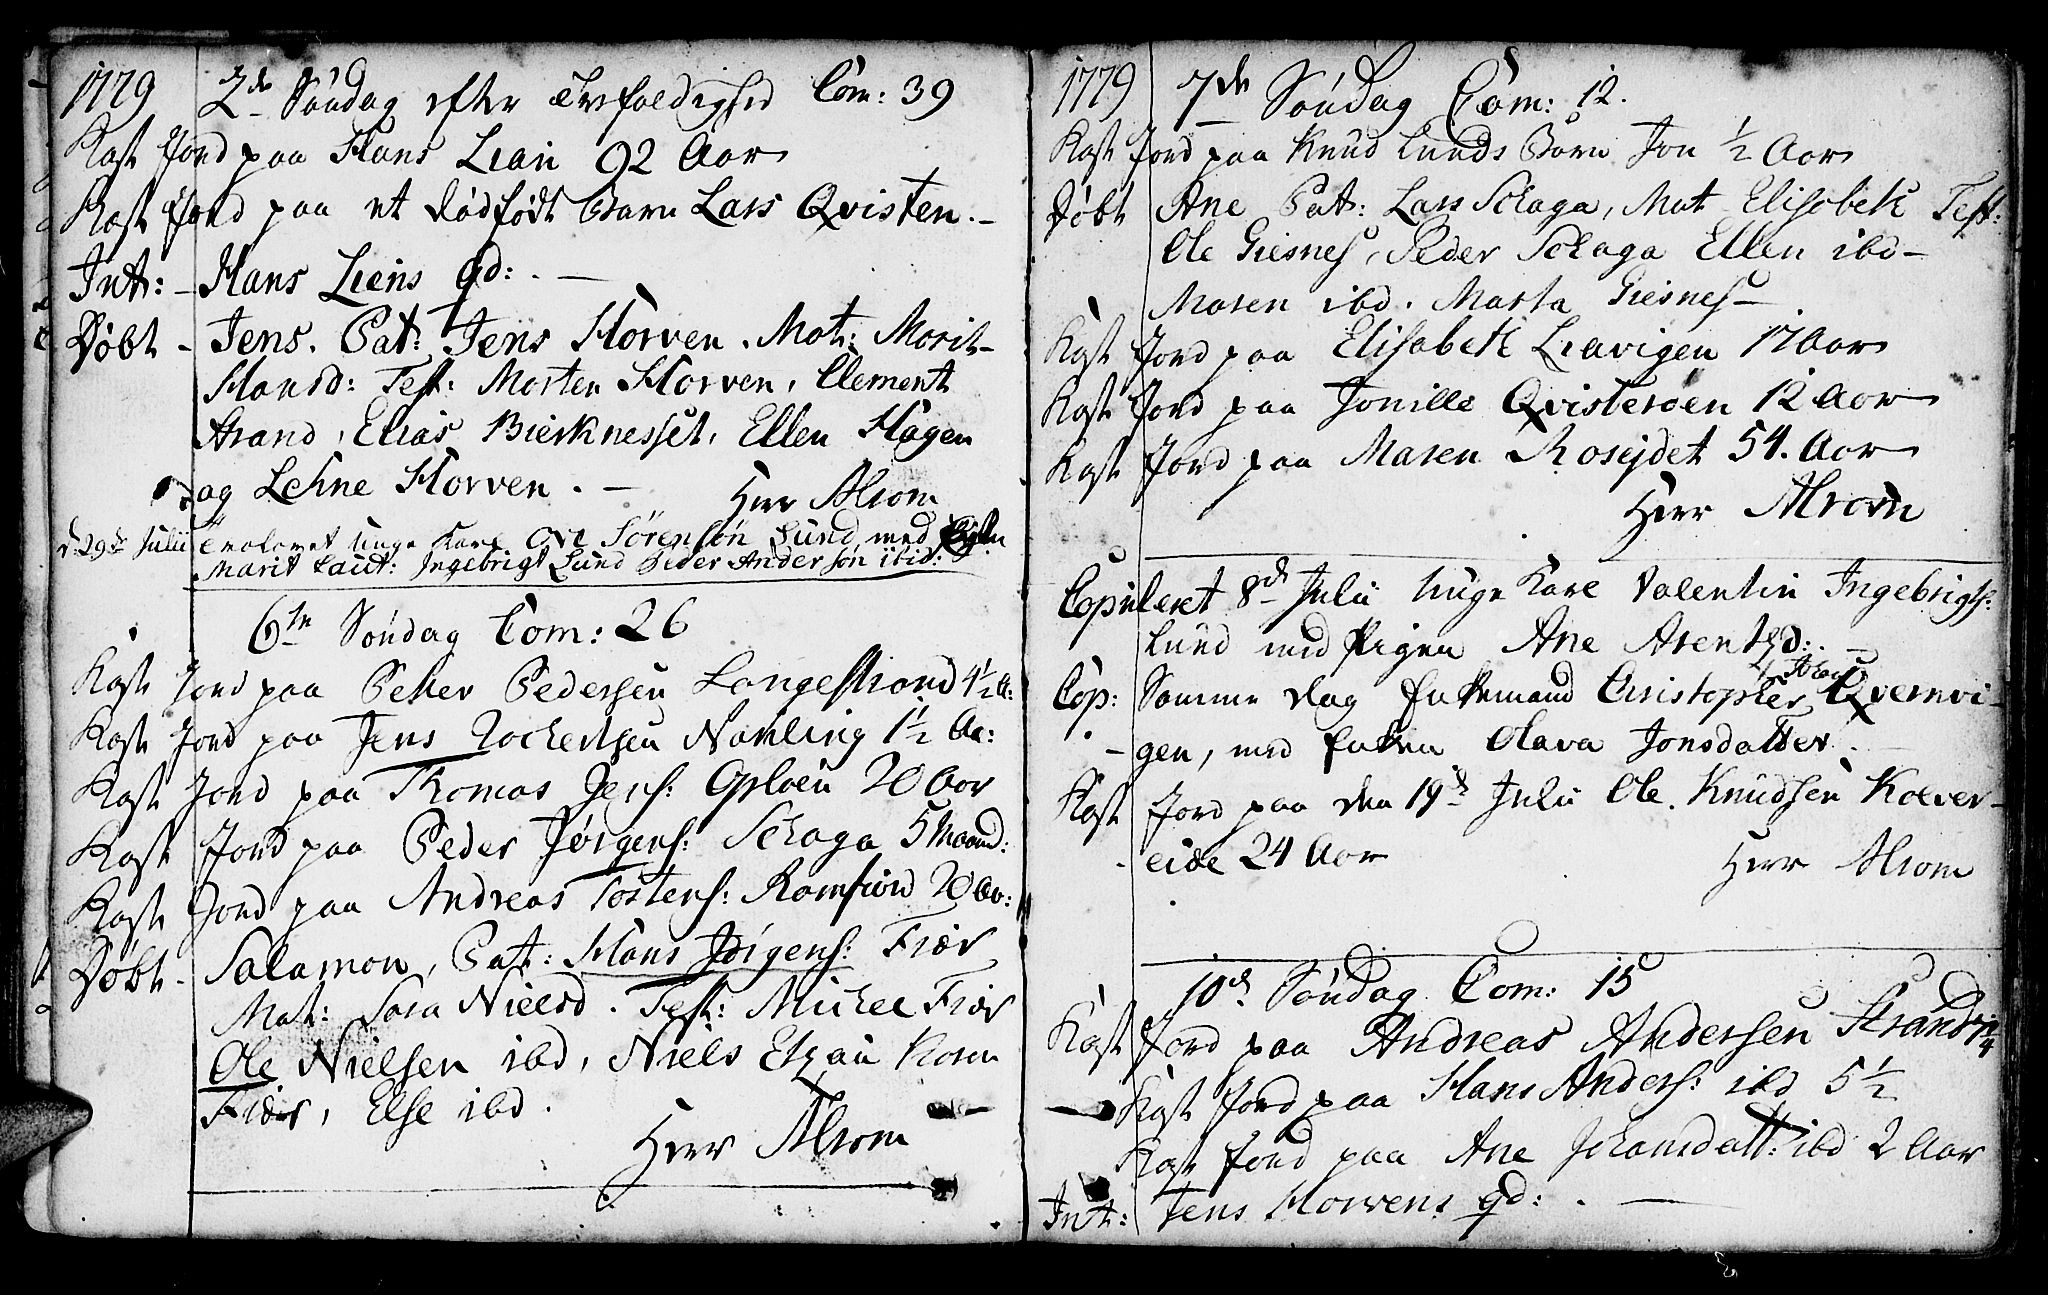 1779 2de Søndag efter Trefoldighed Com: 39
Kast Jord paa Hans Lian 92 Aar
Kast Jord paa et dødfødt Barn Lars Qvisten. -
Int: - Hans Liens qd: . -
Døbt - Jens. Pat: Jens Horven. Mat: Marit
Hansd: Test: Morten Horven, Clement
Strand, Elias Bierknesset, Ellen Hagen
og Lehne Horven. - Herr Alrom
d: 29de Julii Trolovet unge Karl Ole Sørensøn Lund med Pigen
Marit Caut: Ingebrigt Lund Peder Andersøn ibid:
6te Søndag Com: 26
Kast Jord paa Peter Pedersen Langestrand 4½ A:
Kast Jord paa Jens Zachertsen Navling 1½ Aa:
Kast Jord paa Thomas Jens: Opløen 20 Aar
Kast Jord paa Peder Jørgens: Schaga 5 Maand:
Kast Jord paa Andreas Tostens: Ramfiord 20 Aa:
Døbt - Salamon, Pat: Hans Jørgens: Fiær
Mat: Sara Nielsd. Test: Michel Fiær
Ole Nielsen ibd, Niels Karen
Fiær, Else ibd.
Herr Alrom
1779 7de Søndag Com: 12.
Kast Jord paa Knud Lunds Barn Jon ½ Aar
Døbt Ane Pat: Lars Schaga, Mat Elisabeth Test:
Ole Giesnes, Peder Schaga Ellen ibd -
Maren ibd. Marta Giesnes -
Kast Jord paa Elisabeth Liavigen 17 Aar
Kast Jord paa Jonille Qvisterøen 12 Aar
Kast Jord paa Maren Rosejdet 54. Aar
Herr Alrom
Copuleret 8de Julii unge Karl Valentin Ingebrigts:
Lund med Pigen Ane Arentzd: . -
Cop: Samme dag Enkemand Christopher Qvernvi-
- gen, med Enken Olava Jonsdatter. -
Kast Jord paa den 19de Julii Ole Knudsen Kolver-
- eide 24 Aar Herr Alrom
10de Søndag Com: 15
Kast Jord paa Andreas Andersen Strand
Kast Jord paa Hans Anders: ibd 5½
Kast Jord paa Ane Johansdatt: ibd 2 Aar
Int: Jens Horvens qd: . -